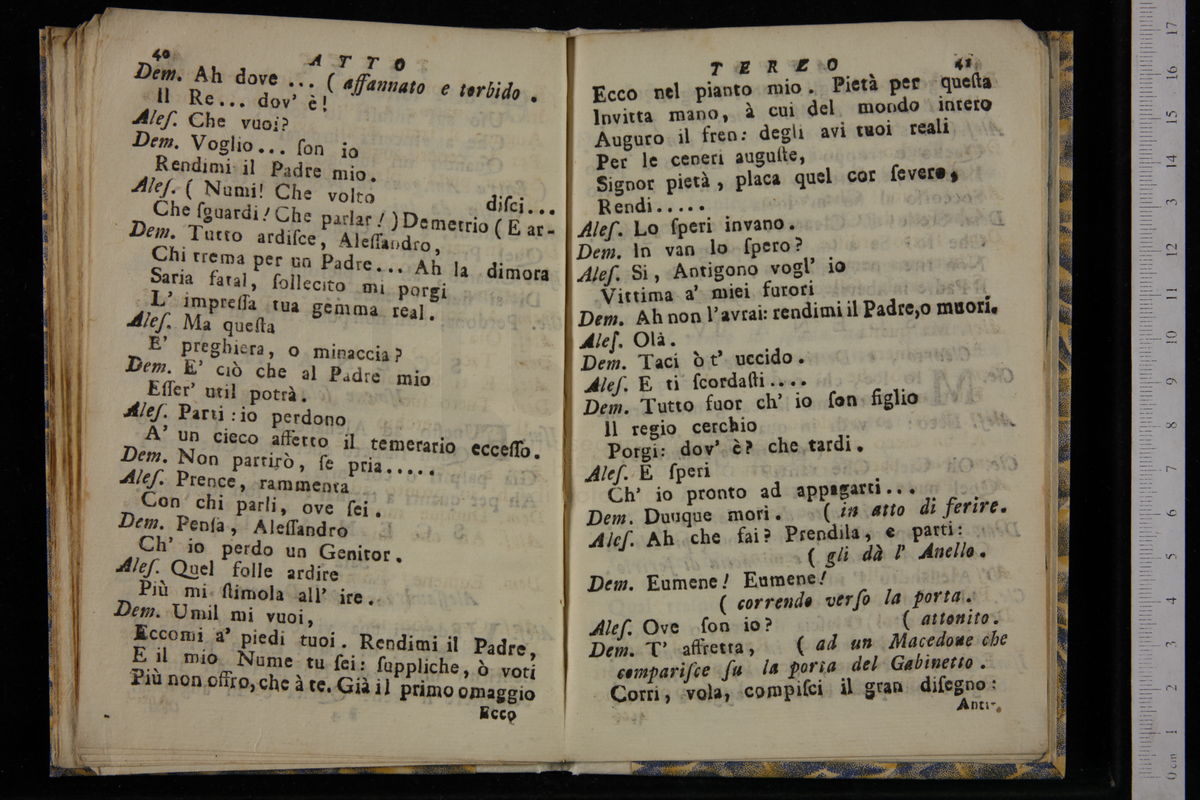 40
ATTO
Dem. Ah dove ... ( affannato e torbido .
Il Re... dov' è!
Aleſ. Che vuoi?
Dem. Voglio... ſon io
Rendimi il Padre mio.
Aleſ. ( Numi! Che volto
diſci...
Che ſguardi! Che parlar! ) Demetrio ( E ar-
Dem. Tutto ardiſce, Aleſſandro,
Chi trema per un Padre... Ah la dimora
Saria fatal, ſollecito mi porgi
L' impreſſa tua gemma real.
Aleſ. Ma queſta
E' preghiera, o minaccia?
Dem. E' ciò che al Padre mio
Eſſer' util potrà.
Aleſ. Parti : io perdono
A' un cieco affetto il temerario ecceſſo.
Dem. Non partirò, ſe pria.....
Aleſ. Prence, rammenta
Con chi parli, ove ſei.
Dem. Penſa, Aleſſandro
Ch' io perdo un Genitor.
Aleſ. Quel folle ardire
Più mi ſtimola all' ire.
Dem. Umil mi vuoi,
Eccomi a' piedi tuoi. Rendimi il Padre,
E il mio Nume tu ſei: ſuppliche, ò voti
Più non offro, che à te. Già il primo omaggio
Ecco
TERZO
41
Ecco nel pianto mio. Pietà per queſta
Invitta mano, à cui del mondo intero
Auguro il fren: degli avi tuoi reali
Per le ceneri auguſte,
Signor pietà, placa quel cor ſevero,
Rendi.....
Aleſ. Lo ſperi invano.
Dem. In van lo ſpero?
Aleſ. Si, Antigono vogl' io
Vittima a' miei furori
Dem. Ah non l'avrai: rendimi il Padre, o muori.
Aleſ. Olà.
Dem. Taci ò t' uccido.
Aleſ. E ti ſcordaſti....
Dem. Tutto fuor ch' io ſon figlio
Il regio cerchio
Porgi: dov' è? che tardi.
Aleſ. E ſperi
Ch' io pronto ad appagarti...
Dem. Duuque mori. ( in atto di ferire.
Aleſ. Ah che fai? Prendila, e parti:
( gli dà l' Anello.
Dem. Eumene! Eumene!
( correndo verſo la porta.
Aleſ. Ove ſon io? ( attonito.
Dem. T' affretta, ( ad un Macedone che
compariſce ſu la porta del Gabinetto.
Corri, vola, compiſci il gran diſegno:
Anti-